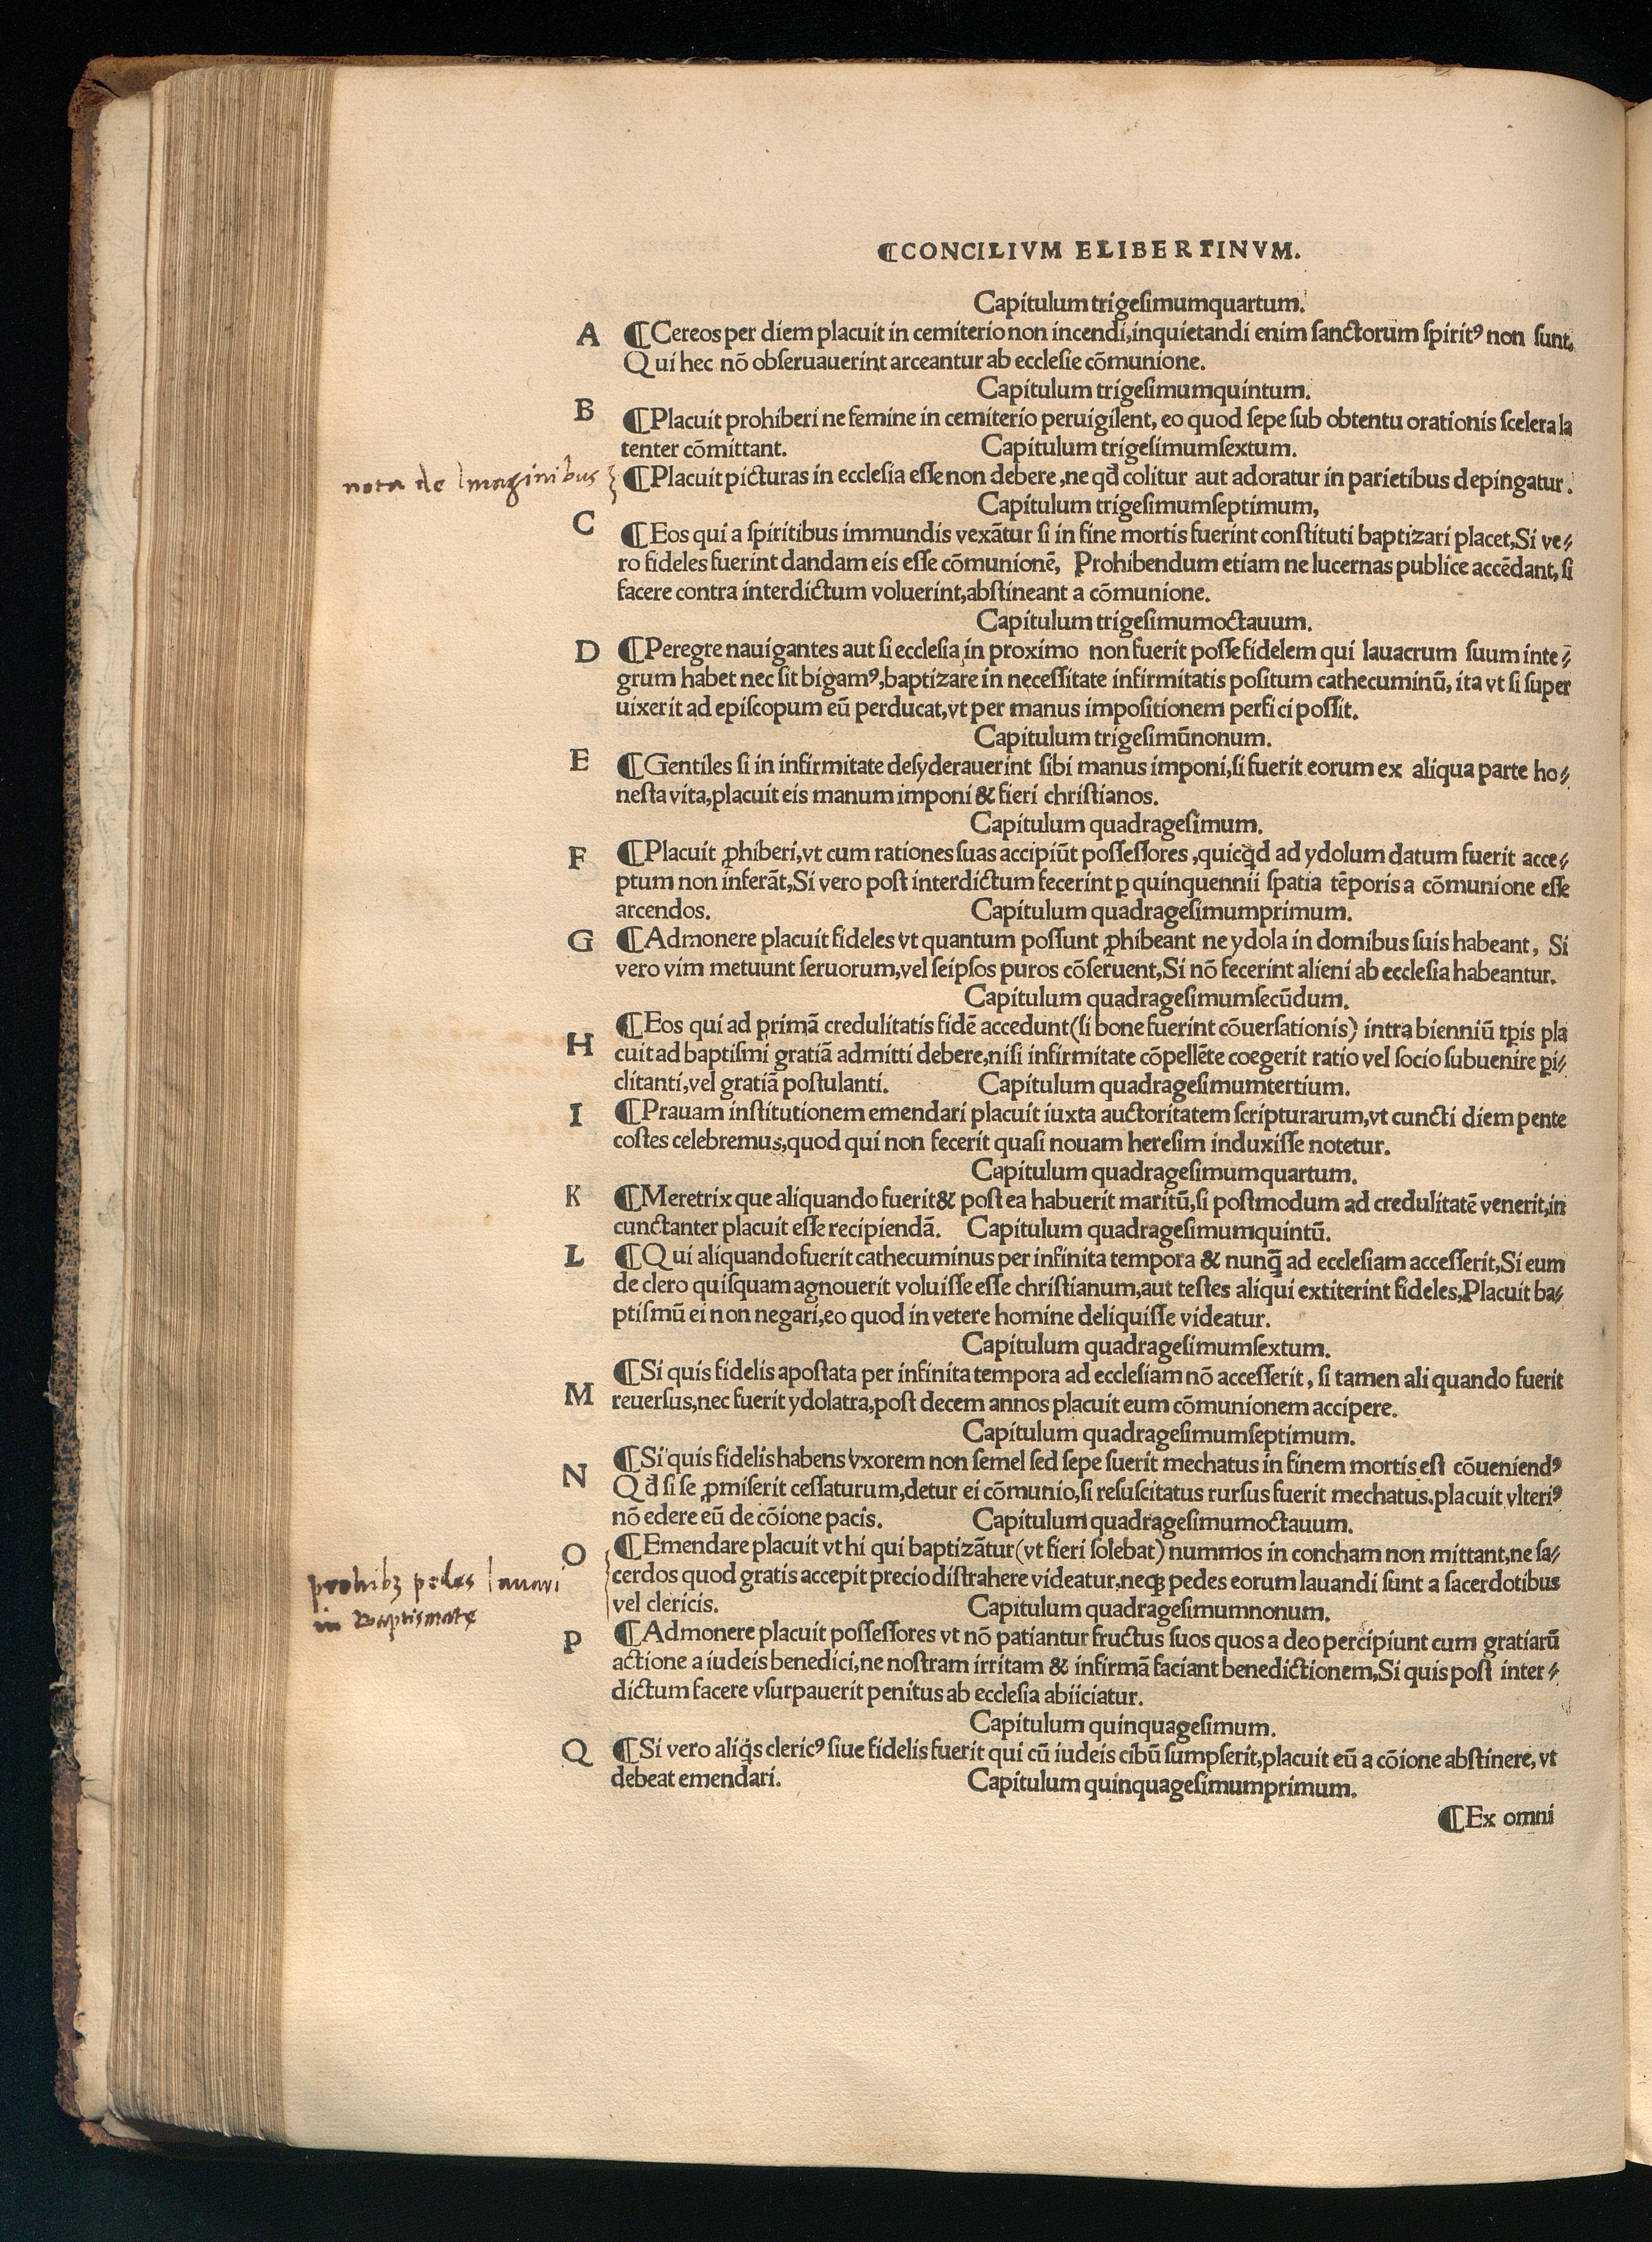 ¶CONCILIVM ELIBERTINVM.
Capitulum trigeſimumquartum.
A ¶Cereos per diem placuit in cemiterio non incendi,inquietandi enim ſanctorum ſpiritꝰ non ſunt.
Qui hec nõ obſeruauerint arceantur ab eccleſie cõmunione.
Capitulum trigeſimumquintum.
B ¶Placuit prohiberi ne femine in cemiterio peruigilent, eo quod ſepe ſub obtentu orationis ſcelera la
tenter cõmittant. Capitulum trigeſimumſextum.
nota de Imaginibus
¶Placuit picturas in eccleſia eſſe non debere,ne qđ colitur aut adoratur in parietibus depingatur.
Capitulum trigeſimumſeptimum,
C ¶Eos qui a ſpiritibus immundis vexãtur ſi in fine mortis fuerint conſtituti baptizari placet,Si ve⸗
ro fideles fuerint dandam eis eſſe cõmunionẽ, Prohibendum etiam ne lucernas publice accẽdant, ſi
facere contra interdictum voluerint,abſtineant a cõmunione.
Capitulum trigeſimumoctauum.
D ¶Peregre nauigantes aut ſi eccleſia in proximo non fuerit poſſe fidelem qui lauacrum ſuum inte⸗
grum habet nec ſit bigamꝰ,baptizare in neceſſitate infirmitatis poſitum cathecuminũ, ita vt ſi ſuper
uixerit ad epiſcopum eũ perducat,vt per manus impoſitionem perfici poſſit.
Capitulum trigeſimũnonum.
E ¶Gentiles ſi in infirmitate deſyderauerint ſibi manus imponi,ſi fuerit eorum ex aliqua parte ho⸗
neſta vita,placuit eis manum imponi & fieri chriſtianos.
Capitulum quadrageſimum.
F ¶Placuit ꝓhiberi,vt cum rationes ſuas accipiũt poſſeſſores,quicq̃d ad ydolum datum fuerit acce⸗
ptum non inferãt,Si vero poſt interdictum fecerint ꝑ quinquennii ſpatia tẽporis a cõmunione eſſe
arcendos. Capitulum quadrageſimumprimum.
G ¶Admonere placuit fideles vt quantum poſſunt ꝓhibeant ne ydola in domibus ſuis habeant, Si
vero vim metuunt ſeruorum,vel ſeipſos puros cõſeruent,Si nõ fecerint alieni ab eccleſia habeantur.
Capitulum quadrageſimumſecũdum.
H ¶Eos qui ad primã credulitatis fidẽ accedunt(ſi bone fuerint cõuerſationis) intra bienniũ tꝑis pla
cuit ad baptiſmi gratiã admitti debere,niſi infirmitate cõpellẽte coegerit ratio vel ſocio ſubuenire ꝑi⸗
clitanti,vel gratiã poſtulanti. Capitulum quadrageſimumtertium.
I ¶Prauam inſtitutionem emendari placuit iuxta auctoritatem ſcripturarum,vt cuncti diem pente
coſtes celebremus,quod qui non fecerit quaſi nouam hereſim induxiſſe notetur.
Capitulum quadrageſimumquartum.
K ¶Meretrix que aliquando fuerit & poſtea habuerit maritũ,ſi poſtmodum ad credulitatẽ venerit,in
cunctanter placuit eſſe recipiendã. Capitulum quadrageſimumquintũ.
L ¶Qui aliquando fuerit cathecuminus per infinita tempora & nunq̃ ad eccleſiam acceſſerit,Si eum
de clero quiſquam agnouerit voluiſſe eſſe chriſtianum,aut teſtes aliqui extiterint fideles,Placuit ba⸗
ptiſmũ ei non negari,eo quod in vetere homine deliquiſſe videatur.
Capitulum quadrageſimumſextum.
¶Si quis fidelis apoſtata per infinita tempora ad eccleſiam nõ acceſſerit, ſi tamen aliquando fuerit
M reuerſus,nec fuerit ydolatra,poſt decem annos placuit eum cõmunionem accipere.
Capitulum quadrageſimumſeptimum.
¶Si quis fidelis habens vxorem non ſemel ſed ſepe fuerit mechatus in finem mortis eſt cõueniendꝰ
N Qđ ſi ſe ꝓmiſerit ceſſaturum,detur ei cõmunio,ſi reſuſcitatus rurſus fuerit mechatus.placuit vlteriꝰ
nõ edere eũ de cõione pacis. Capitulum quadrageſimumoctauum.
O ¶Emendare placuit vt hi qui baptizãtur(vt fieri ſolebat) nummos in concham non mittant,ne ſa⸗
cerdos quod gratis accepit precio diſtrahere videatur,neqꝫ pedes eorum lauandi ſunt a ſacerdotibus
vel clericis. Capitulum quadrageſimumnonum.
prohibꝫ pedes lauari
in Baptismate
P ¶Admonere placuit poſſeſſores vt nõ patiantur fructus ſuos quos a deo percipiunt cum gratiarũ
actione a iudeis benedici,ne noſtram irritam & infirmã faciant benedictionem,Si quis poſt inter⸗
dictum facere vſurpauerit penitus ab eccleſia abiiciatur.
Capitulum quinquageſimum.
Q ¶Si vero aliq̃s clericꝰ ſiue fidelis fuerit qui cũ iudeis cibũ ſumpſerit,placuit eũ a cõione abſtinere, vt
debeat emendari. Capitulum quinquageſimumprimum.
¶Ex omni